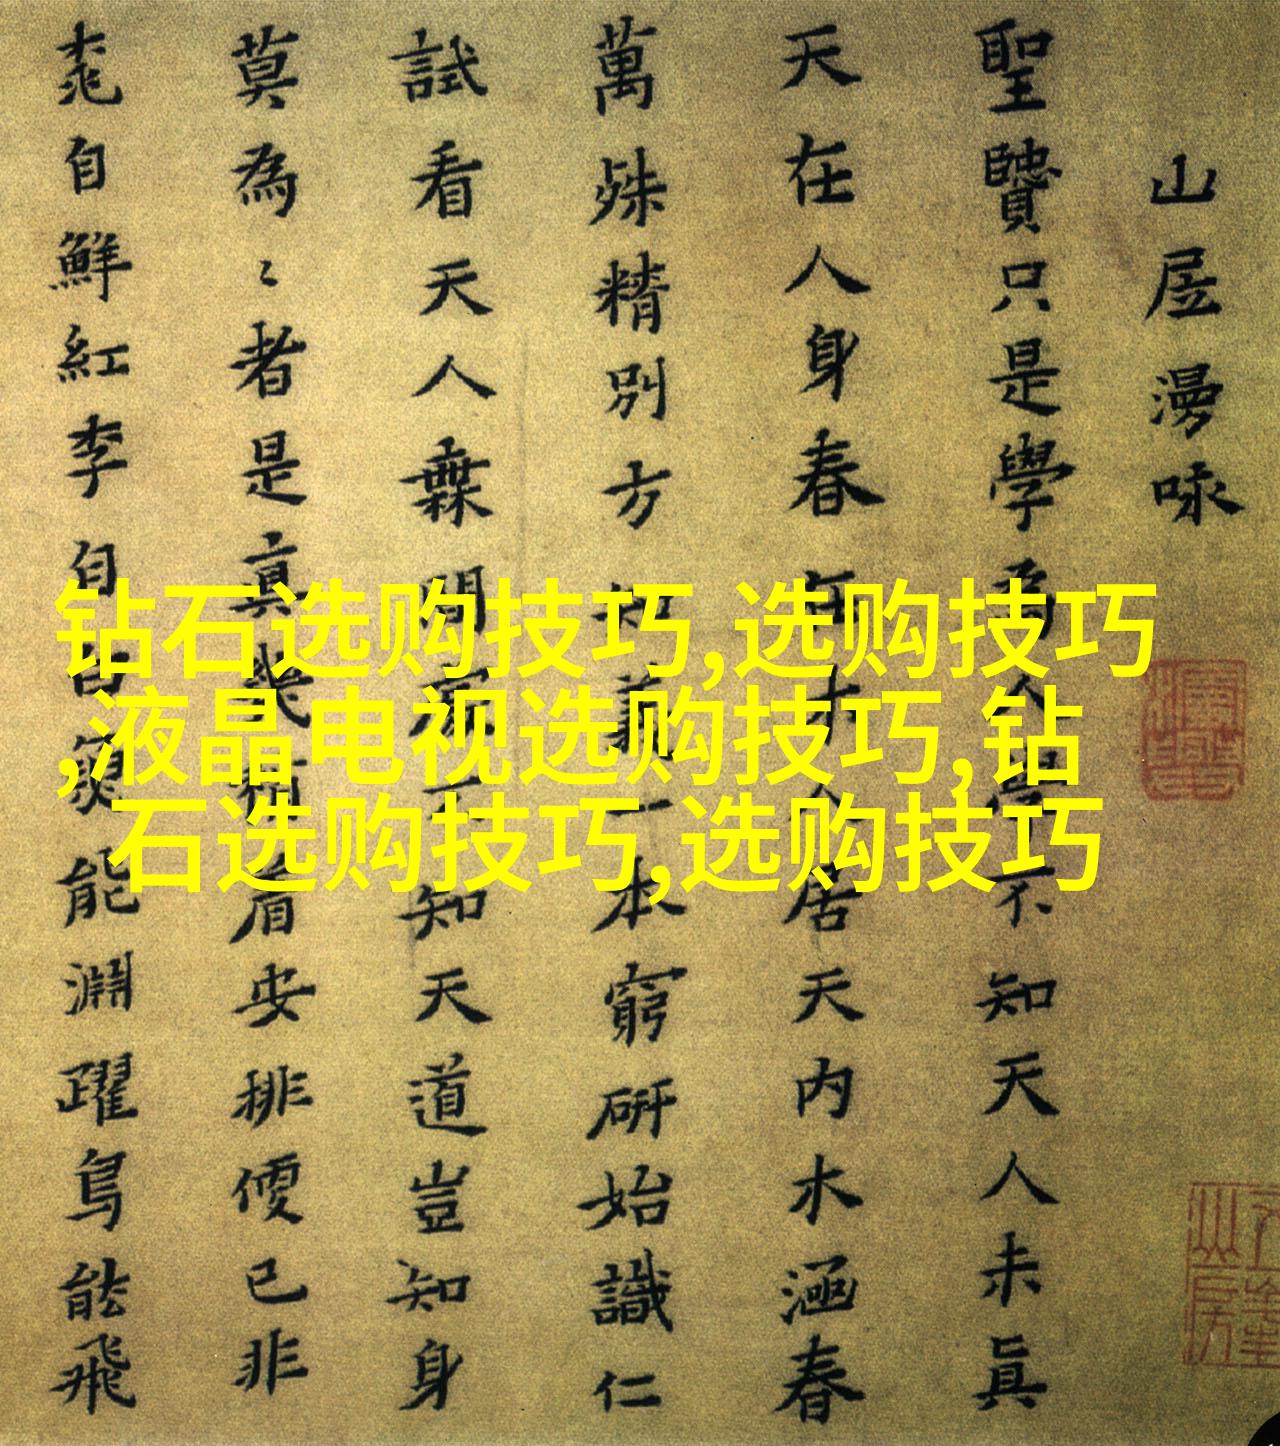 山居漫咏
聖贒只是學爲人學不知天人未眞
天在人身春在木人居天内木涵春
萬殊精別方知義一本窮研始識仁
試看天人無間知天道豈知身
莫為〻者是真機有着安排便已非
桃自鮮紅李自白能淵躍鳥能飛
钻石选购技巧,选购技巧
,液晶电视选购技巧,钻
石选购技巧,选购技巧